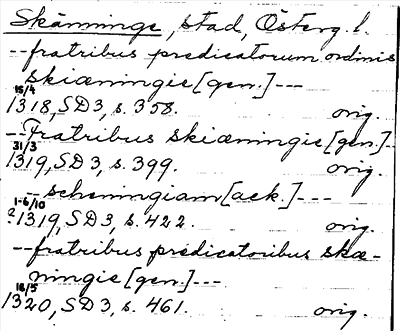 Skänninge, stad, Österg. l.
--fratribus predicatorum ordinis
skiæningie [gen.] ---
15/4
1318, SD 3, s. 358. orig.
--Fratribus skiæningie [gen.]--
31/3
1319, SD 3, s. 399. orig.
--scheningiam [ack.] ---
1-6/10
?1319, SD 3, s. 422. orig.
--fratribus predicatoribus skæ-
ningie [gen.] ---
18/5
1320, SD 3, s. 461. orig.